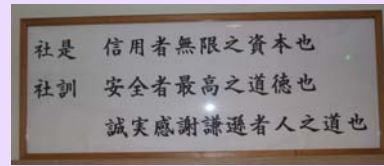 社是　信用者無限之資本也
社訓　安全者最高之道徳也
誠実感謝謙遜者人之道也